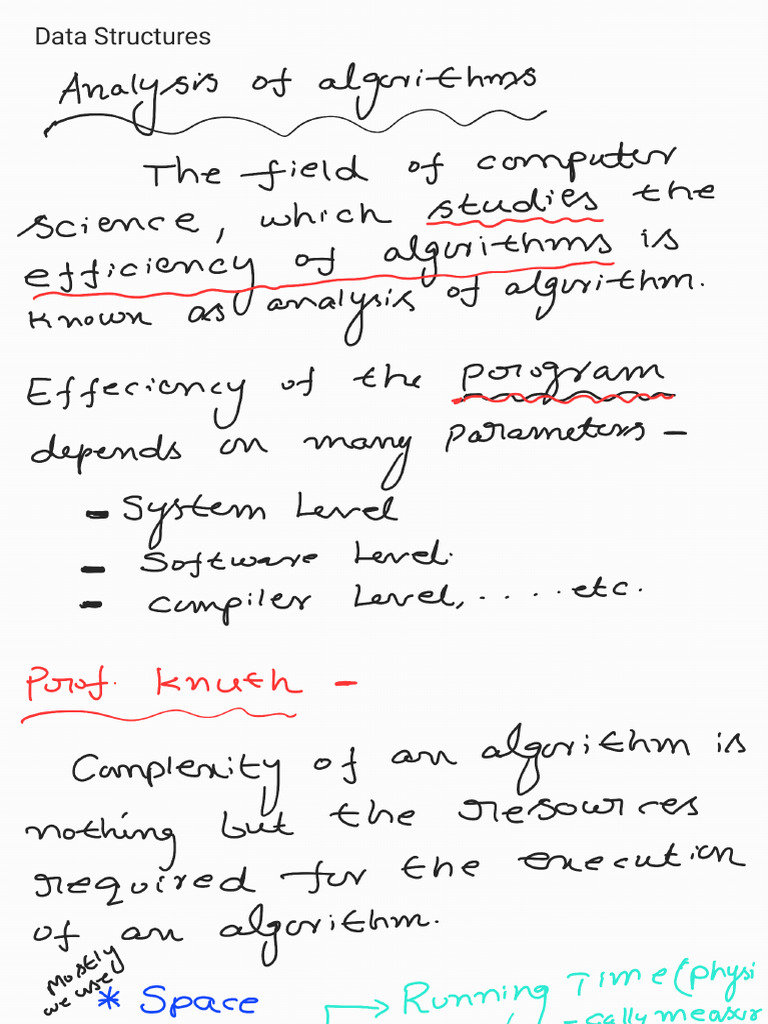 Data Structures
Analysis of algorithms
The field of computer
science, which studies the
efficiency of algorithms is
known as analysis of algorithm.
Effeciency of the program
depends on many parameters -
- System Level
- Software Level.
- Compiler Level, ..... etc.
Prof. Knuth -
Complexity of an algorithm is
nothing but the resources
required for the execution
of an algorithm.
Mostly
we use
* Space
Running Time (physi
- cally measur